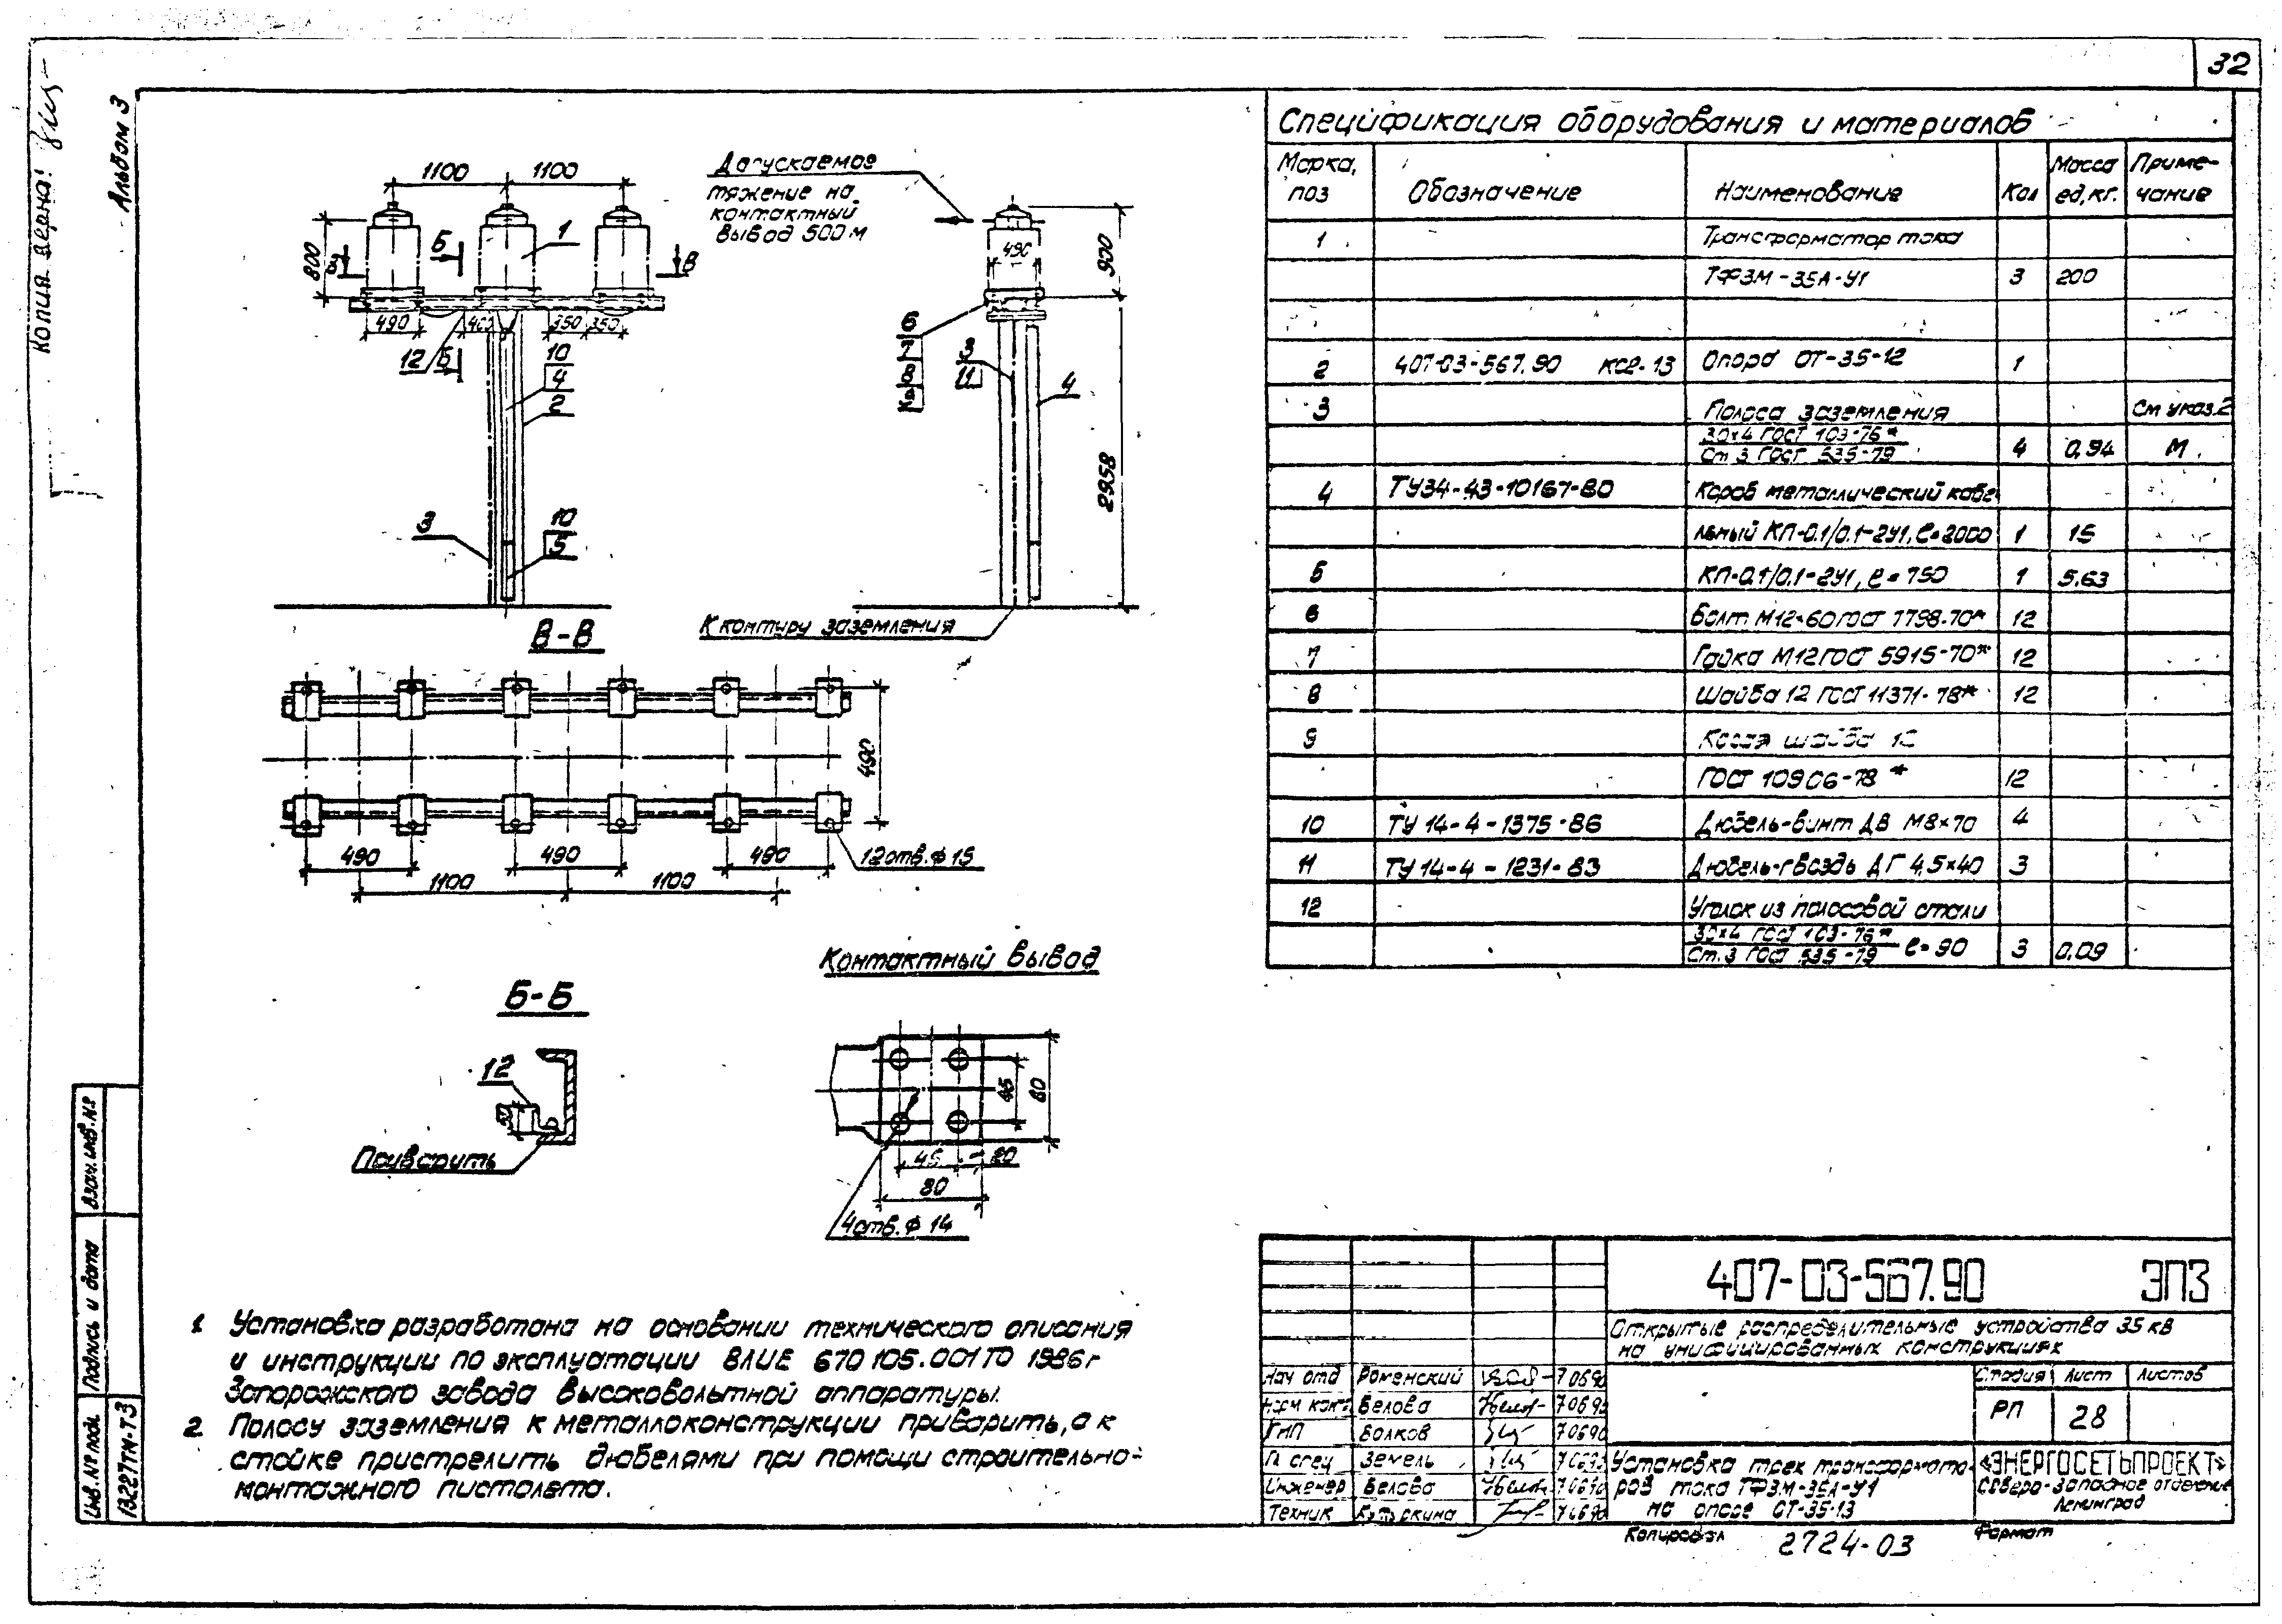 32
Копия верна:
Альбом 3
1100
1100
Допускаемое
тяжение на
контактный
вывод 500 м
800
В
Б
1
В
490
400
350
350
12
Б
10
4
2
3
10
5
490
900
6
7
8
3
11
4
2958
К контуру заземления
В-В
490
490
490
490
1100
1100
12 отв. ф 15
Б-Б
12
Приварить
Контактный вывод
45
80
45
20
80
4 отв. ф 14
Спецификация оборудования и материалов
Марка, поз
Обозначение
Наименование
Кол
Масса ед, кг.
Приме- чание
1 Трансформатор тока
ТФЗМ-35А-У1 3 200
2 407-03-567.90 КС2-13 Опора ОТ-35-12 1
3 Полоса заземления См указ.2
30×4 ГОСТ 103-76*
Ст 3 ГОСТ 535-79 4 0,94 М
4 ТУ34-43-10167-80 Короб металлический кабе
льный КП-0.1/0.1-2У1, ℓ=2000 1 15
5 КП-0.1/0.1-2У1, ℓ=750 1 5.63
6 Болт М12×60 ГОСТ 7798-70* 12
7 Гайка М12 ГОСТ 5915-70* 12
8 Шайба 12 ГОСТ 11371-78* 12
9 Косая шайба 12
ГОСТ 10906-78* 12
10 ТУ 14-4-1375-86 Дюбель-винт ДВ М8×70 4
11 ТУ 14-4-1231-83 Дюбель-гвоздь ДГ 4,5×40 3
12 Уголок из полосовой стали
30×4 ГОСТ 103-76*
Ст.3 ГОСТ 535-79 ℓ=90 3 0,09
1 Установка разработана на основании технического описания
и инструкции по эксплуатации ВЛИЕ 670 105.001 ТО 1986 г
Запорожского завода высоковольтной аппаратуры.
2 Полосу заземления к металлоконструкции приварить, а к
стойке пристрелить дюбелями при помощи строительно-
монтажного пистолета.
407-03-567.90 ЭП3
Открытые распределительные устройства 35 кВ
на унифицированных конструкциях
Нач отд Роменский 70690
Норм конт. Белова
ГИП Волков 70690
Гл спец Земель
Инженер Белова 70690
Техник
Стадия Лист Листов
РП 28
Установка трех трансформато-
ров тока ТФЗМ-35А-У1
на опоре ОТ-35-13
«ЭНЕРГОСЕТЬПРОЕКТ»
Северо-Западное отделение
Ленинград
Копировал
2724-03
Формат
Взам. инв. №
Подпись и дата
Инв. № подл.
13227тм-Т3